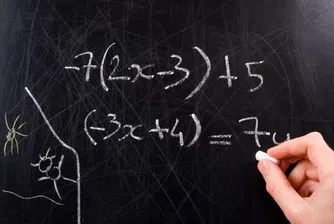 -7(2x-3)+5
(-3x+4)=7